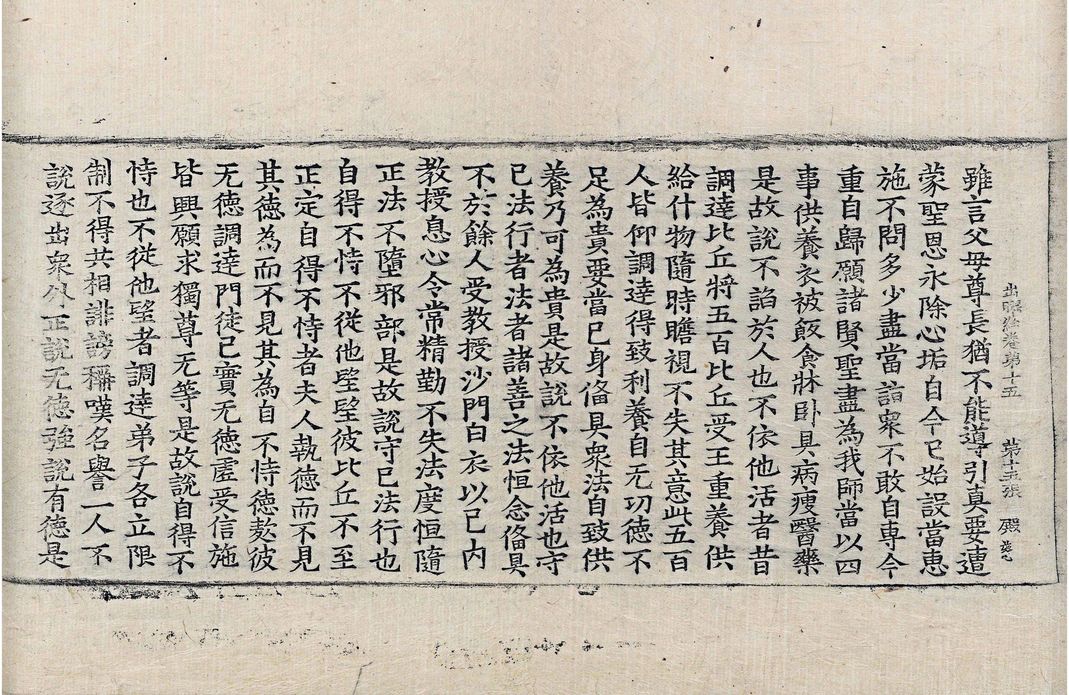 出曜經卷第十五 第十五張 殿
雖言父母尊長猶不能導引真要遭
蒙聖恩永除心垢自今已始設當惠
施不問多少盡當詣衆不敢自専今
重自歸願諸賢聖盡為我師當以四
事供養衣被飯食牀卧具病瘦醫藥
是故說不諂於人也不依他活者昔
調達比丘將五百比丘受王重養供
給什物隨時瞻視不失其意此五百
人皆仰調達得致利養自无㓛德不
足為貴要當已身俻具衆法自致供
養乃可為貴是故說不依他活也守
已法行者法者諸善之法恒念俻具
不於餘人受教授沙門白衣以已内
教授息心令常精勤不失法度恒隨
正法不墮邪部是故說守已法行也
自得不恃不從他望望彼比丘不至
正定自得不恃者夫人執德而不見
其德為而不見其為自不恃德憗彼
无德調達門徒已實无德虛受信施
皆興願求獨尊无等是故說自得不
恃也不從他望者調達弟子各立限
制不得共相誹謗稱嘆名譽一人不
說逐出衆外正說无德強說有德是